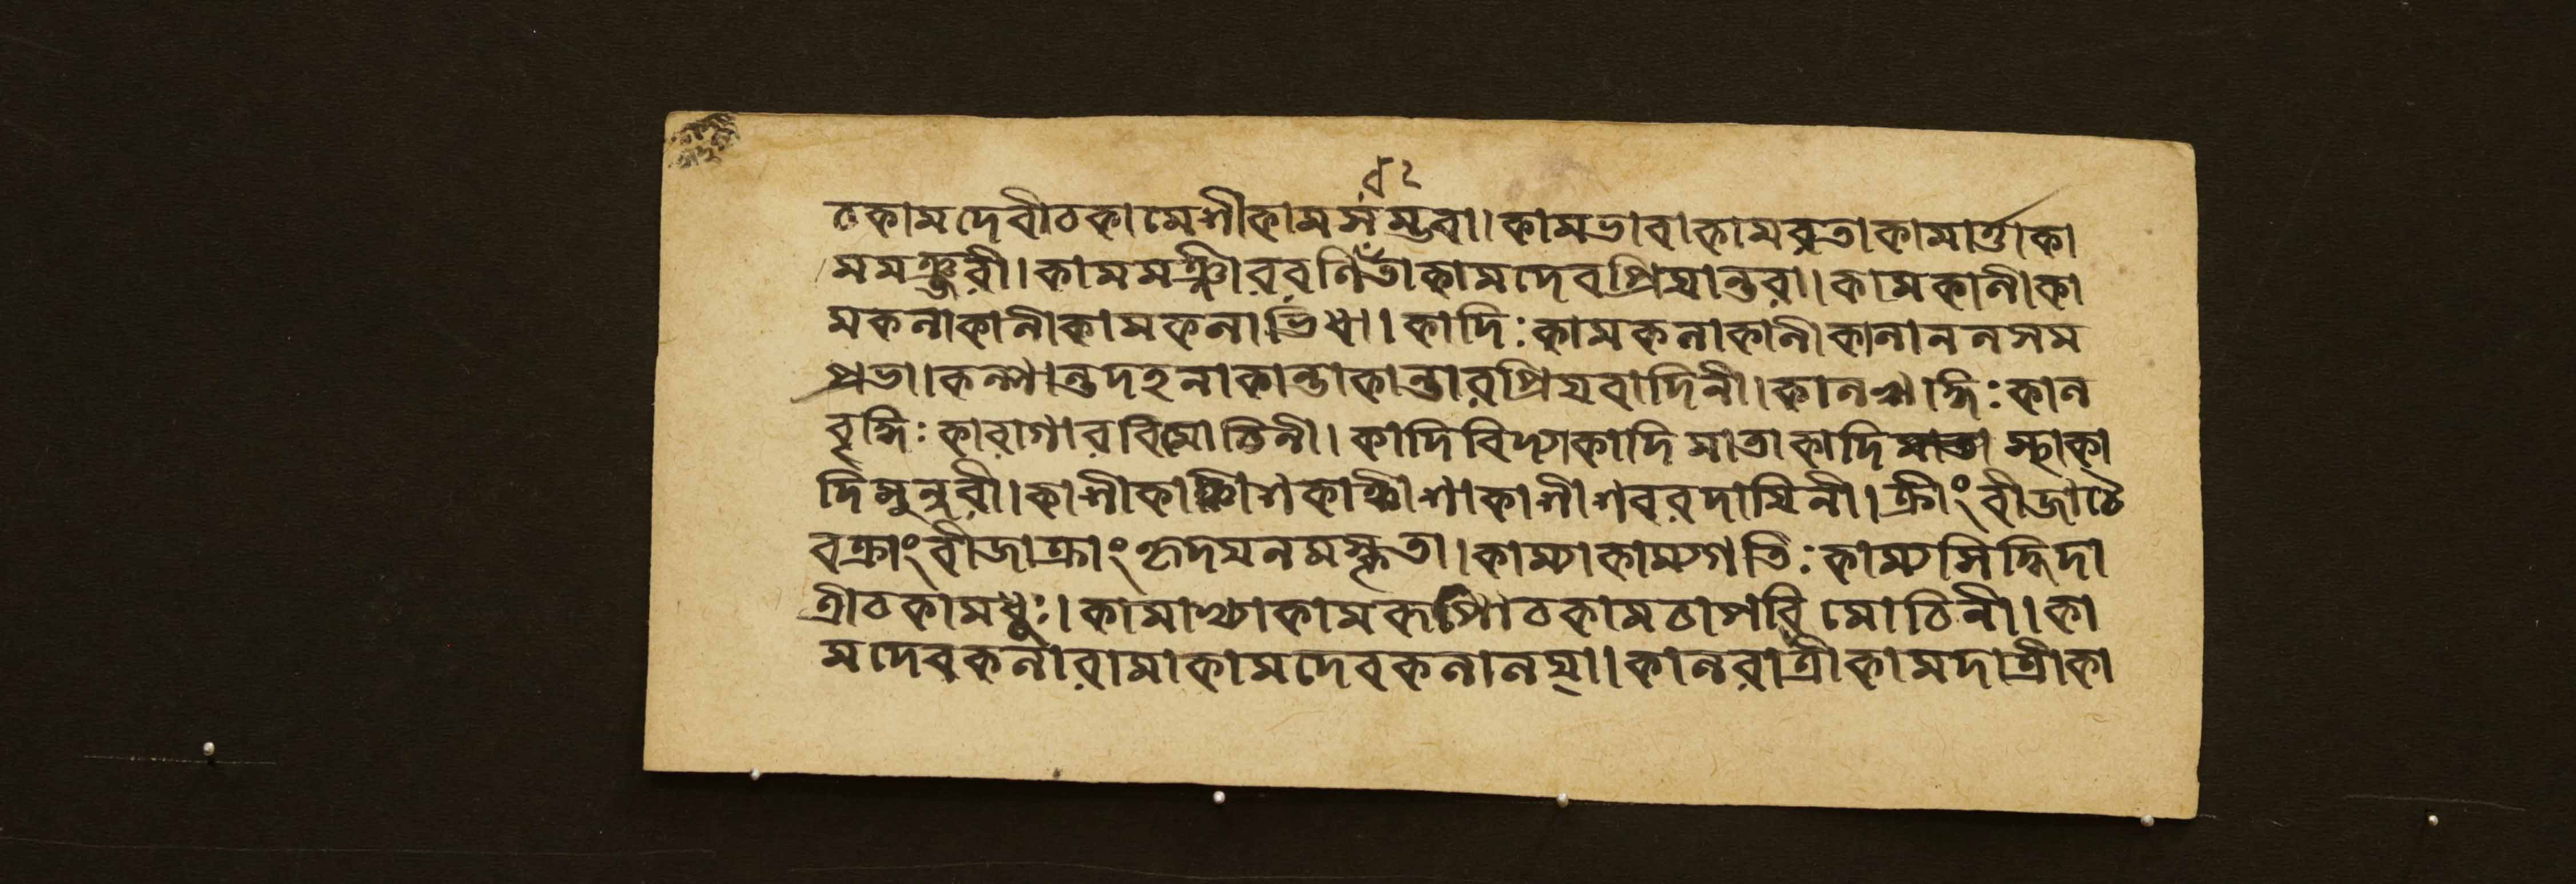 ৫২
চকামদেবীচকামেশীকামসম্ভবা।কামভাবাকামরতাকামার্ত্তাকা
মমঞ্জরী।কামমঞ্জীররণিতাকামদেবপ্রিয়ান্তরা।কামকালীকা
মকলাকালীকামকলাভিধা।কাদিঃকামকলাকালীকালানলসম
প্রভা।কল্পান্তদহনাকান্তাকান্তারপ্রিয়বাদিনী।কালপ্রাপ্তিঃকাল
বৃদ্ধিঃকারাগারবিমোচিনী।কাদিবিদ্যাকাদিমাতাকাদিস্থাকা
দিসুন্দরী।কাশীকাঞ্চীশকাঞ্চীশাকাশীশবরদায়িনী।ক্রীংবীজাচৈ
বক্রাংবীজাক্রাংহৃদয়নমস্কৃতা।কাম্যাকাম্যগতিঃকাম্যসিদ্ধিদা
ত্রীচকামধুঃ।কামাখ্যাকামরূপাচকামচাপবিমোচিনী।কা
মদেবকলারামাকামদেবকলালয়া।কালরাত্রীকামদাত্রীকা